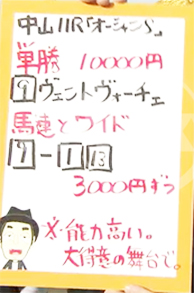 中山11R「オーシャンS」
単勝 10000円
9 ヴェントヴォーチェ
馬連とワイド
9-1 13
3000円ずつ
※能力高い。
大得意の舞台で。